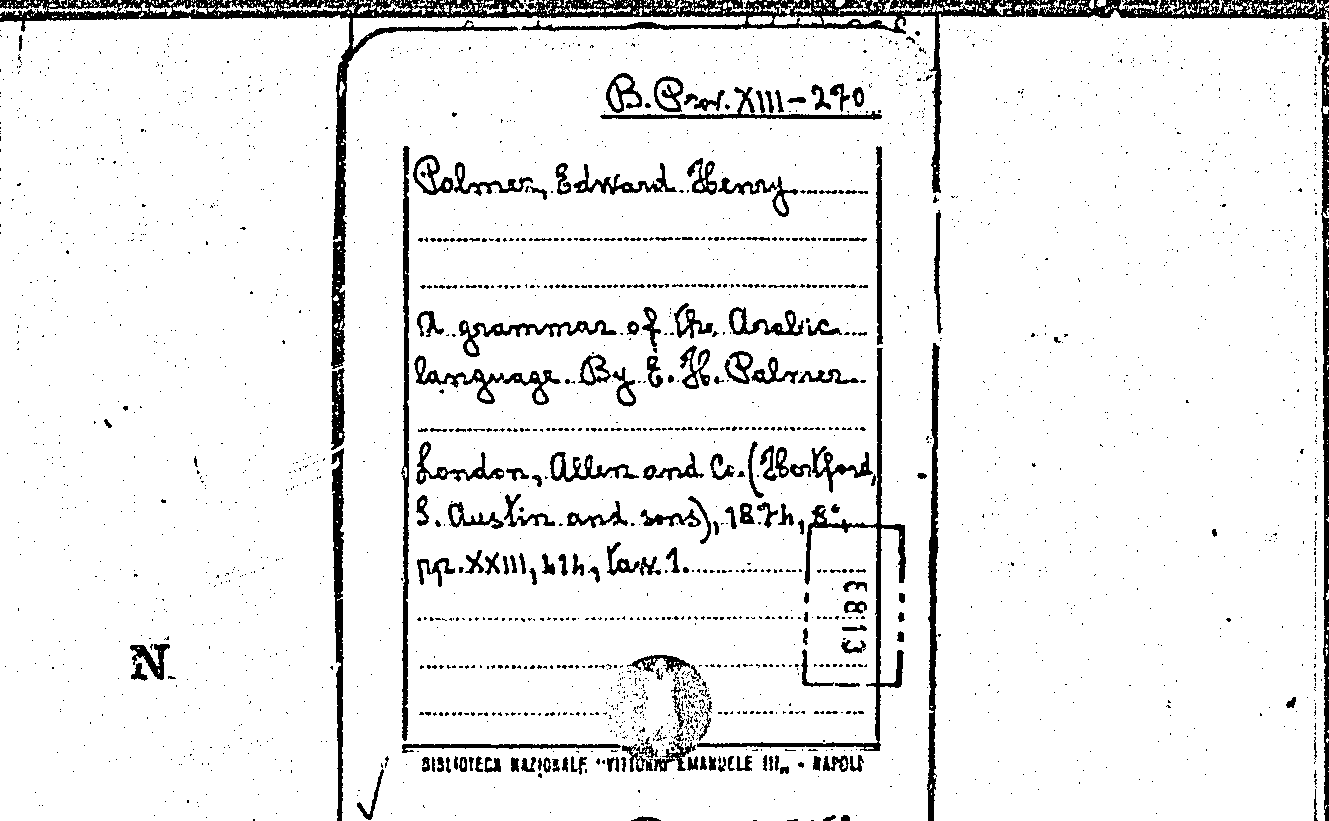 B. Prov. XIII-270
Palmer, Edward Henry
A grammar of the Arabic
language. By E. H. Palmer
London, Allen and Co. (Hertford,
S. Austin and sons), 1874, 8°,
pp. XXIII, 414, tav. 1.
E813
N
BIBLIOTECA NAZIONALE "VITTORIO EMANUELE III„ - NAPOLI